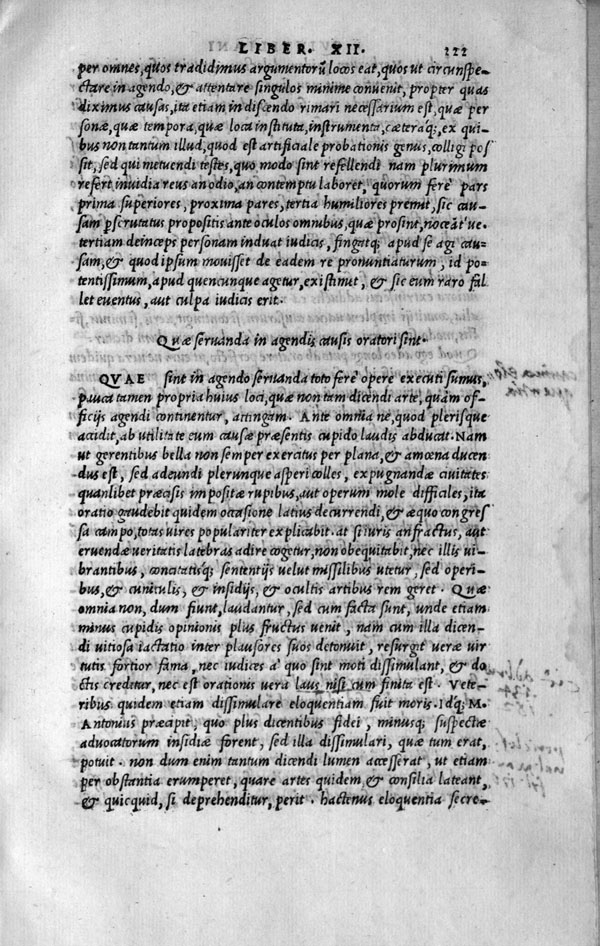 LIBER · XII · 222
per omnes, quos tradidimus argumentorũ locos eat, quos ut circunspe-
ctare in agendo, & attentare singulos minime conuenit, propter quas
diximus causas, ita etiam in discendo rimari necessarium est, quæ per
sonæ, quæ tempora, quæ loca instituta, instrumenta, cæteraq;, ex qui-
bus non tantum illud, quod est artificiale probationis genus, colligi pos
sit, sed qui metuendi testes, quo modo sint refellendi nam plurimum
refert, inuidia reus an odio, an contemptu laboret, quorum ferè pars
prima superiores, proxima pares, tertia humiliores premit, sic cau-
sam pscrutatus propositis ante oculos omnibus, quæ prosint, nocẽat'ue·
tertiam deinceps personam induat iudicis, fingatq; apud se agi cau-
sam, & quod ipsum mouisset de eadem re pronuntiaturum, id po-
tentissimum, apud quencunque agetur, existimet, & sic eum raro fal
let euentus, aut culpa iudicis erit·
Quæ seruanda in agendis causis oratori sint·
QVAE sint in agendo seruanda toto ferè opere executi sumus,
pauca tamen propria huius loci, quæ non tam dicendi arte, quàm of-
ficijs agendi continentur, attingam· Ante omnia ne, quod plerisque
accidit, ab utilitate eum causæ præsentis cupido laudis abducat· Nam
ut gerentibus bella non semper exercitus per plana, & amœna ducen
dus est, sed adeundi plerunque asperi colles, expugnandæ ciuitates
quanlibet præcisis impositæ rupibus, aut operum mole difficiles, ita
oratio gaudebit quidem occasione latius decurrendi, & æquo congres
sa campo, totas uires populariter explicabit· at si iuris anfractus, aut
eruendæ ueritatis latebras adire cogetur, non obequitabit, nec illis ui-
brantibus, concitatisq; sententijs uelut missilibus utetur, sed operi-
bus, & cuniculis, & insidijs, & ocultis artibus rem geret · Quæ
omnia non, dum fiunt, laudantur, sed cum facta sunt, unde etiam
minus cupidis opinionis plus fructus uenit, nam cum illa dicen-
di uitiosa iactatio inter plausores suos detonuit, resurgit ueræ uir
tutis fortior fama, nec iudices a' quo sint moti dissimulant, & do
ctis creditur, nec est orationis uera laus nisi cum finita est · Vete-
ribus quidem etiam dissimulare eloquentiam fuit moris· Idq; M.
Antonius præcipit, quo plus dicentibus fidei, minusq; suspectæ
aduocatorum insidiæ forent, sed illa dissimulari, quæ tum erat,
potuit · non dum enim tantum dicendi lumen accesserat, ut etiam
per obstantia erumperet, quare artes quidem, & consilia lateant,
& quicquid, si deprehenditur, perit · hactenus eloquentia secre-